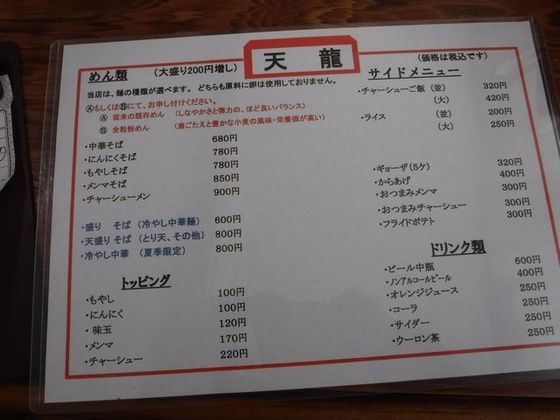 天龍
めん類 (大盛り200円増し)
当店は、麺の種類が選べます。どちらも原料に卵は使用しておりません。
Ⓐもしくは🅑にて、お申し付けください。
Ⓐ 従来の既存めん (しなやかさと弾力の、ほど良いバランス)
🅑 全粒粉めん (歯ごたえと豊かな小麦の風味・栄養価が高い)
・中華そば 680円
・にんにくそば 780円
・もやしそば 780円
・メンマそば 850円
・チャーシューメン 900円
・盛り そば (冷やし中華麺) 600円
・天盛りそば (とり天、その他) 800円
・冷やし中華 (夏季限定) 800円
トッピング
・もやし 100円
・にんにく 100円
・味玉 120円
・メンマ 170円
・チャーシュー 220円
(価格は税込です)
サイドメニュー
・チャーシューご飯 (並) 320円
(大) 420円
・ライス (並) 200円
(大) 250円
・ギョーザ(5ケ) 320円
・からあげ 400円
・おつまみメンマ 300円
・おつまみチャーシュー 300円
・フライドポテト 300円
ドリンク類
・ビール中瓶 600円
・ノンアルコールビール 400円
・オレンジジュース 250円
・コーラ 250円
・サイダー 250円
・ウーロン茶 250円